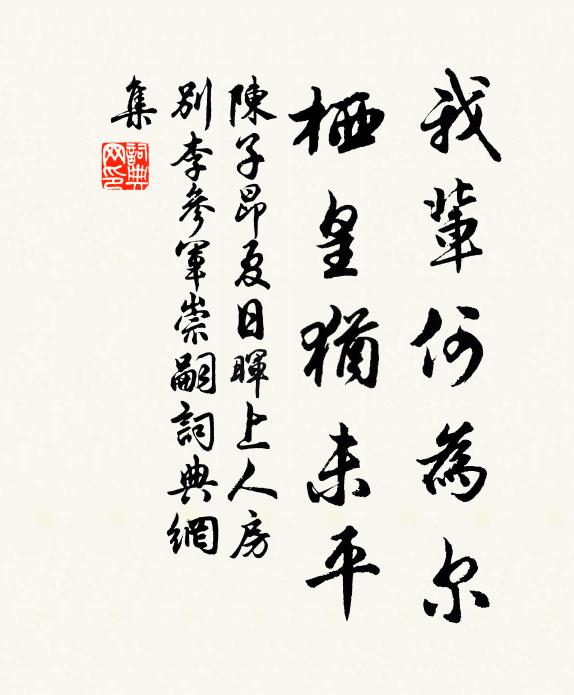 我輩何為尔
栖皇猶未平
陳子昂夏日暉上人房
別李參軍崇嗣詞典網
集
詞典网印